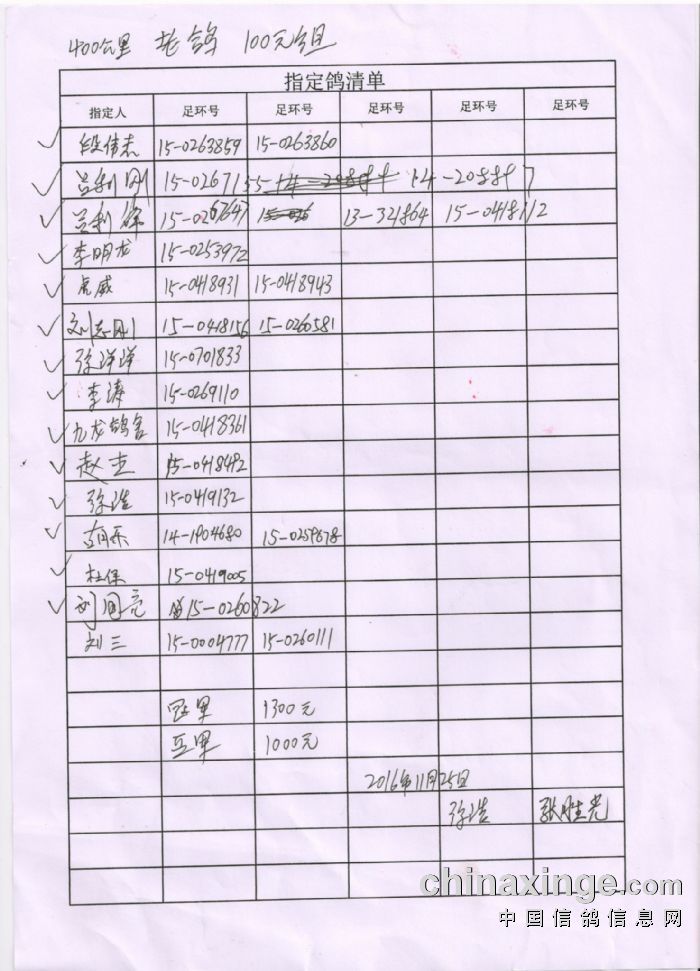 400公里 老鸽 100元组
指定鸽清单
指定人 足环号 足环号 足环号 足环号 足环号
段伟杰 15-0263859 15-0263860
吕利刚 15-0267155 14-2088897
15-0267647 13-321864 15-0418112
李明龙 15-0253972
虎威 15-0418931 15-0418943
刘志刚 15-0418156 15-0260581
徐洋洋 15-0701833
李涛 15-0269110
九龙鸽舍 15-0418361
赵杰 15-0418482
徐浩 15-0419132
14-1904680 15-0259878
杜保 15-0419005
刘国亮 15-0260822
刘三 15-0004777 15-0260111
冠军 1300元
亚军 1000元
2016年11月25日
徐浩 张胜光
chinaxinge.com
中国信鸽信息网